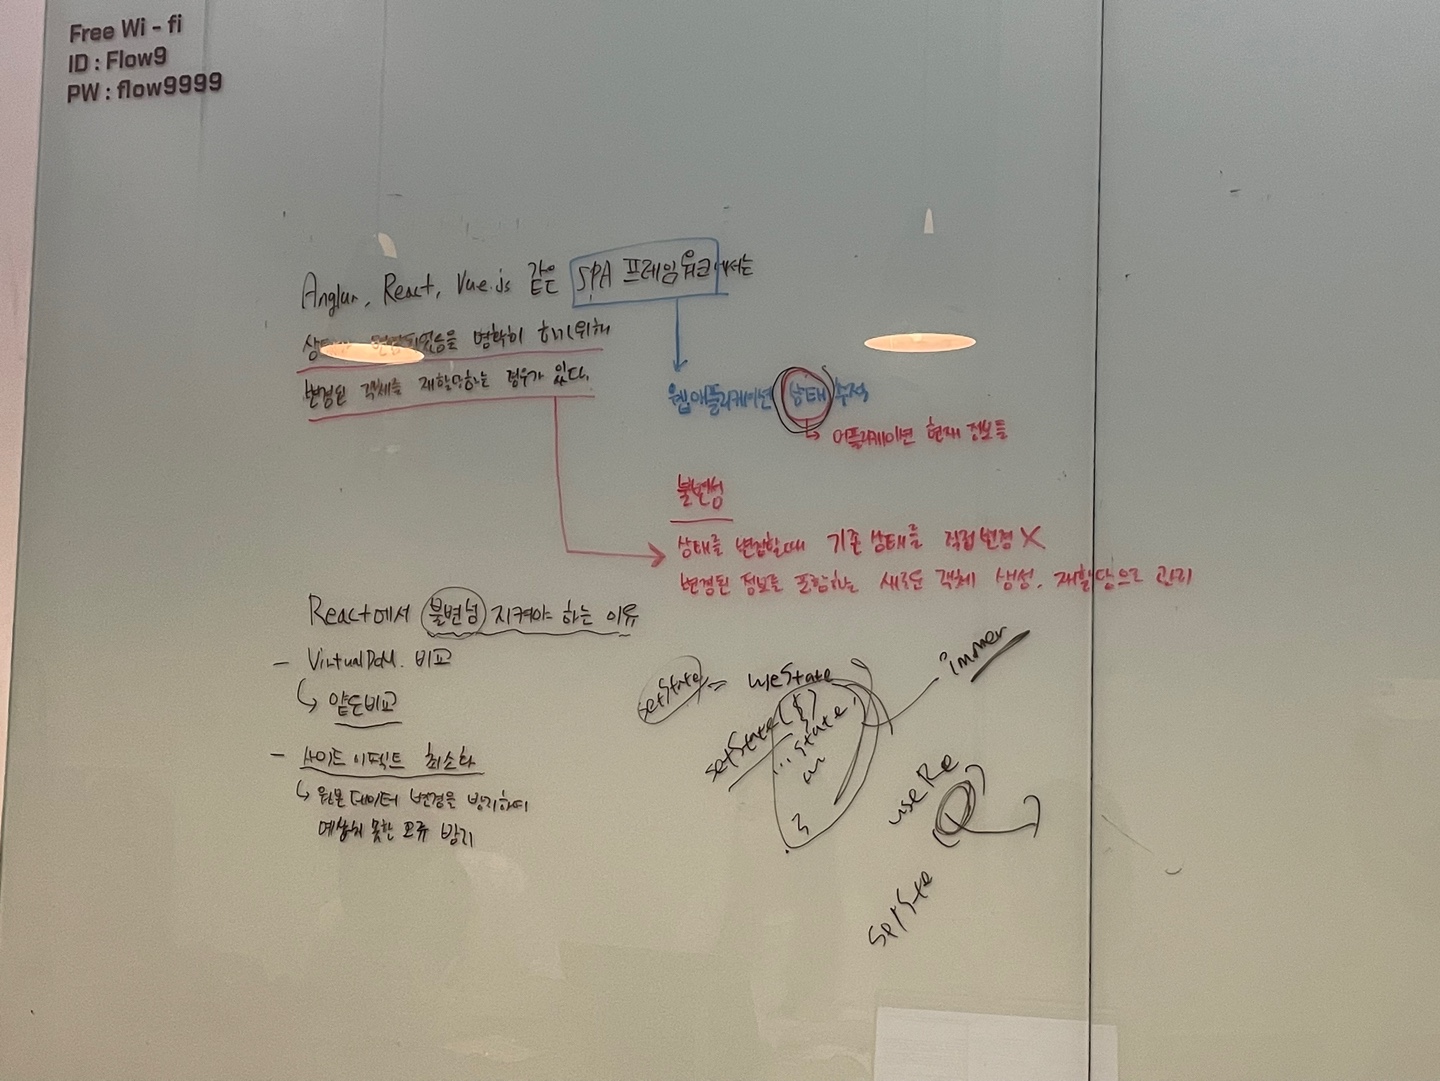 Free Wi - fi
ID : Flow9
PW : flow9999
Anglur, React, Vue.js 같은 SPA 프레임워크에서는
상태가 변경되었음을 명확히 하기 위해
변경된 객체를 재할당하는 경우가 있다.
웹 애플리케이션 상태 추적
어플리케이션 현재 정보들
불변성
상태를 변경할때 기존 상태를 직접 변경 X
변경된 정보를 포함하는 새로운 객체 생성. 재할당으로 관리
React에서 불변성 지켜야 하는 이유
- VirtualDOM. 비교
얕은비교
- 사이드 이펙트 최소화
원본 데이터 변경을 방지하여
예상치 못한 오류 방지
setState = useState
immer
setState({
...state,
}
useRe
SetSte